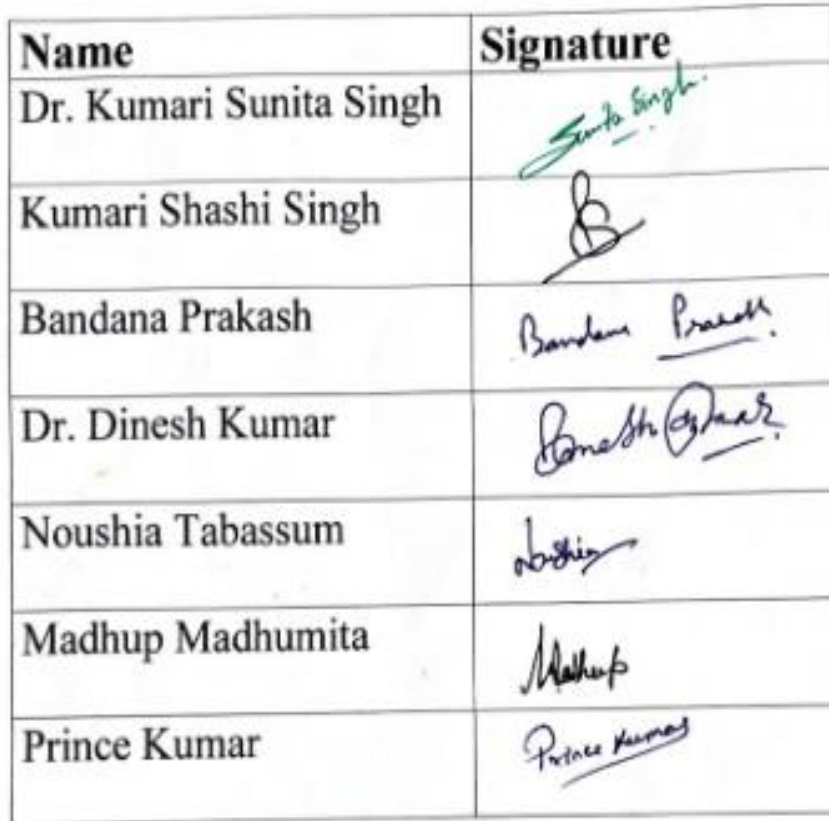 Name Signature
Dr. Kumari Sunita Singh Sunita Singh.
Kumari Shashi Singh
Bandana Prakash Bandana Prakash
Dr. Dinesh Kumar
Noushia Tabassum Noushia
Madhup Madhumita Madhup
Prince Kumar Prince Kumar